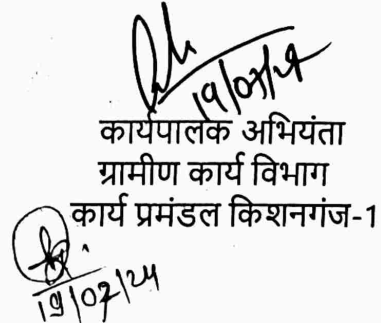 19/07/24
कार्यपालक अभियंता
ग्रामीण कार्य विभाग
कार्य प्रमंडल किशनगंज-1
19/07/24